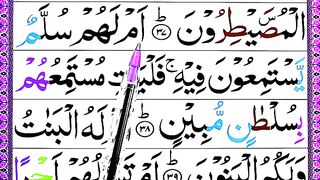 الْمُصَۜيْطِرُوْنَ ﴿۳۷﴾ اَمْ لَهُمْ سُلَّمٌ
يَّسْتَمِعُوْنَ فِيْهِ ۚ فَلْيَاْتِ مُسْتَمِعُهُمْ
بِسُلْطٰنٍ مُّبِيْنٍ ﴿۳۸﴾ لَهُ الْبَنٰتُ
وَلَكُمُ الْبَنُوْنَ ﴿۳۹﴾ اَمْ تَسْـَٔلُهُمْ اَجْرًا